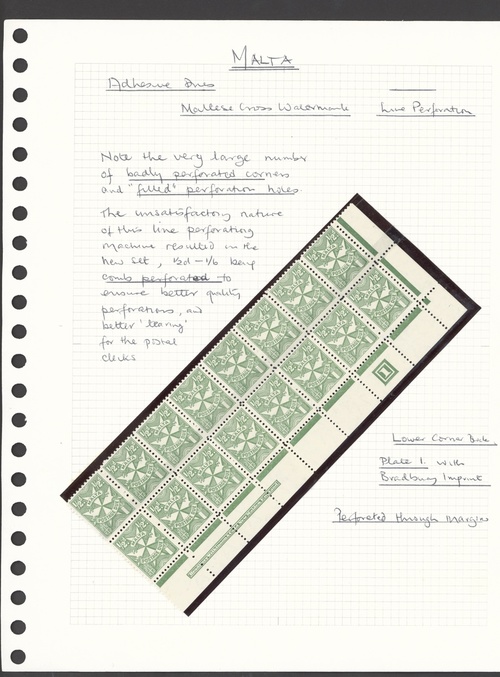 MALTA
Adhesive Dues
Maltese Cross Watermark
Line Perforation
Note the very large number
of badly perforated corners
and "filled" perforation holes.
The unsatisfactory nature
of this line perforating
machine resulted in the
new set, ½d - 1/6 being
comb perforated to
ensure better quality
perforations, and
better 'tearing'
for the postal
clerks
1
Lower Corner Block
Plate 1. with
Bradbury Imprint
Perforated through margins